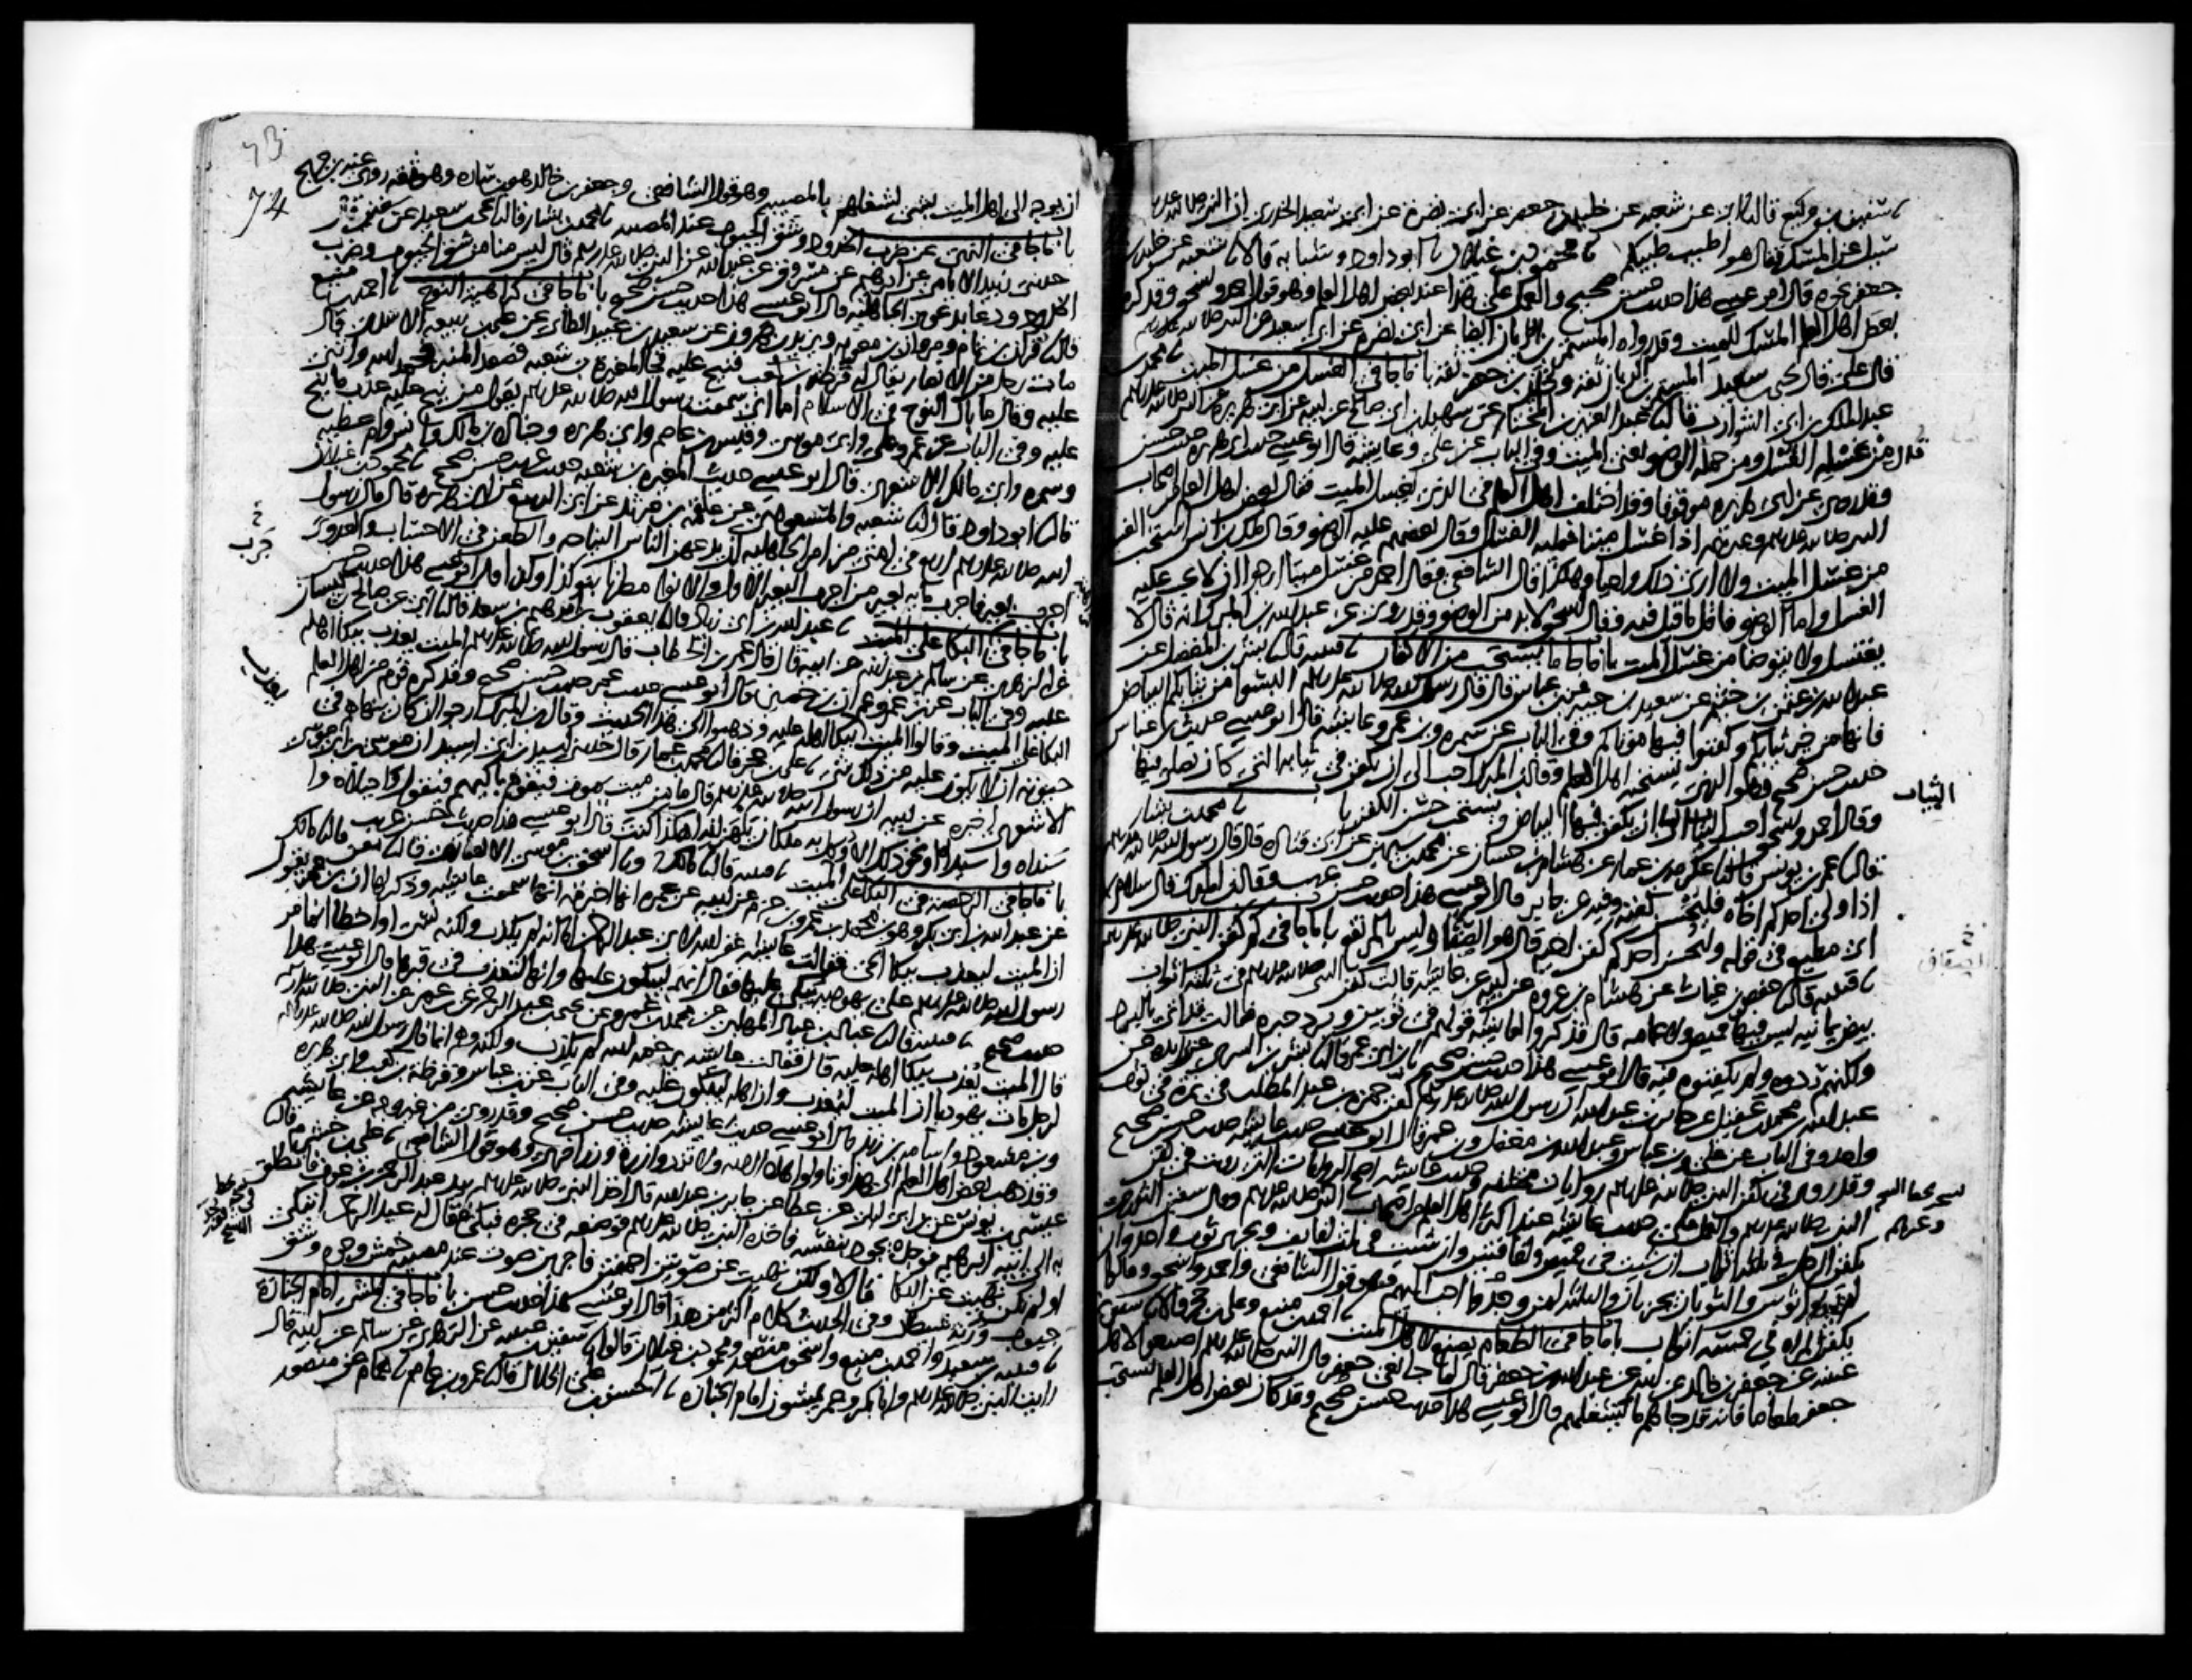 سفين بن وكيع قال نا ابي عن شعبه عن خليد بن جعفر عن ابي نضرة عن ابي سعيد الخدري ان النبي صلى الله عليه
سئل عن المسك فقال هو اطيب طيبكم نا محمود بن غيلان نا ابو داود وشبابه قالا نا شعبه عن خليد بن
جعفر نحوه قال ابو عيسى هذا حديث حسن صحيح والعمل على هذا عند بعض اهل العلم وهو قول احمد واسحق وقد كره
بعض اهل العلم المسك للميت وقد رواه المستمر بن الريان ايضا عن ابي نضره عن ابي سعيد عن النبي صلى الله عليه
قال علي قال يحيى بن سعيد المستمر بن الريان ثقه وخليد بن جعفر ثقه باب ما جا في الغسل من غسل الميت نا محمد بن
عبد الملك بن ابي الشوارب قال نا عبد العزيز بن المختار عن سهيل بن ابي صالح عن ابيه عن ابي هريرة عن النبي صلى الله عليه
قال من غسله الغسل ومن حمله الوضو يعني الميت وفي الباب عن علي وعايشه قال ابو عيسى حديث ابي هريره حديث حسن
وقد روي عن ابي هريره موقوفا وقد اختلف اهل العلم في الذي يغسل الميت فقال بعض اهل العلم من اصحاب
النبي صلى الله عليه وغيرهم اذا غسل ميتا فعليه الغسل وقال بعضهم عليه الوضو وقال ملك بن انس استحب الغسل
من غسل الميت ولا ارى ذلك واجبا وهكذا قال الشافعي وقال احمد من غسل ميتا ارجو ان لا يجب عليه
الغسل واما الوضو فاقل ما قيل فيه وقال اسحق لا بد من الوضو وقد روي عن عبد الله بن المبرك انه قال لا
يغتسل ولا يتوضا من غسل الميت باب ما جا ما يستحب من الاكفان نا قتيبه قال نا بشر بن المفضل عن
عبد الله بن عثمن بن خثيم عن سعيد بن جبير عن ابن عباس قال قال رسول الله صلى الله عليه البسوا من ثيابكم البياض
فانها من خير ثيابكم وكفنوا فيها موتاكم وفي الباب عن سمره وابن عمر وعايشه قال ابو عيسى حديث ابن عباس
حديث حسن صحيح وهو الذي يستحبه اهل العلم وقال ابن المبرك احب الي ان يكفن في ثيابه التي كان يصلي فيها
وقال احمد واسحق احب الثياب الينا ان يكفن فيها البياض ويستحب حسن الكفن باب نا محمد بن بشار
قال نا عمر بن يونس قال نا عكرمه بن عمار عن هشام بن حسان عن محمد بن سيرين عن ابي قتاده قال قال رسول الله صلى الله عليه
اذا ولي احدكم اخاه فليحسن كفنه وفيه عن جابر قال ابو عيسى هذا حديث حسن غريب وقال ابن المبارك قال سلام بن
ابي مطيع في قوله وليحسن احدكم كفن اخيه قال هو الصفا وليس بالمرتفع باب ما جا في كم كفن النبي صلى الله عليه
نا قتيبه قال نا حفص بن غياث عن هشام بن عروه عن ابيه عن عايشه قالت كفن النبي صلى الله عليه في ثلثه اثواب
بيض يمانيه ليس فيها قميص ولا عمامه قال فذكروا لعايشه قولهم في ثوبين وبرد حبره فقالت قد اتي بالبرد
ولكنهم ردوه ولم يكفنوه فيه قال ابو عيسى هذا حديث حسن صحيح نا ابن ابي عمر قال نا بشر بن السري عن زايده عن
عبد الله بن محمد بن عقيل عن جابر بن عبد الله ان رسول الله صلى الله عليه كفن حمزه بن عبد المطلب في نمره في ثوب
واحد وفي الباب عن علي وابن عباس وعبد الله بن مغفل وابن عمر قال ابو عيسى حديث عايشه حديث حسن صحيح
وقد روي في كفن النبي صلى الله عليه روايات مختلفه وحديث عايشه اصح الروايات التي رويت في كفن
النبي صلى الله عليه والعمل على حديث عايشه عند اكثر اهل العلم من اصحاب النبي صلى الله عليه وقال سفين الثوري
يكفن الرجل في ثلثه اثواب ان شيت في قميص ولفافتين وان شيت في ثلث لفايف ويجزي ثوب واحد ان
لم يجدوا ثوبين والثوبان يجزيان والثلثه لمن وجدوا احب اليهم وهو قول الشافعي واحمد واسحق وقالوا
يكفن المراه في خمسه اثواب باب ما جا في الطعام يصنع لاهل الميت نا احمد بن منيع وعلي بن حجر قالا نا سفين بن
عيينه عن جعفر بن خالد عن ابيه عن عبد الله بن جعفر قال لما جا نعي جعفر قال النبي صلى الله عليه اصنعوا لاهل
جعفر طعاما فانه قد جاهم ما يشغلهم قال ابو عيسى هذا حديث حسن صحيح وقد كان بعض اهل العلم يستحب
الثياب
الصفاق
وغيرهم
73
74
ان يوجه الى اهل الميت بشي لشغلهم بالمصيبه وهو قول الشافعي وجعفر بن خالد هو بن ساره وهو ثقه روى عنه بن جريج
باب ما جا في النهي عن ضرب الخدود وشق الجيوب عند المصيبه نا محمد بن بشار قال نا يحيى بن سعيد عن سفين قال
حدثني زبيد الايامي عن ابرهيم عن مسروق عن عبد الله عن النبي صلى الله عليه قال ليس منا من شق الجيوب وضرب
الخدود ودعا بدعوى الجاهليه قال ابو عيسى هذا حديث حسن صحيح باب ما جا في كراهيه النوح نا احمد بن منيع
قال نا قران بن تمام ومروان بن معويه ويزيد بن هرون عن سعيد بن عبيد الطاي عن علي بن ربيعه الاسدي قال
مات رجل من الانصار يقال له قرظه بن كعب فنيح عليه فجا المغيره بن شعبه فصعد المنبر فحمد الله واثنى
عليه وقال ما بال النوح في الاسلام اما اني سمعت رسول الله صلى الله عليه يقول من نيح عليه عذب ما نيح
عليه وفي الباب عن عمر وعلي وابي موسى وقيس بن عاصم وابي هريره وجناده بن مالك وانس وام عطيه
وسمره وابي مالك الاشعري قال ابو عيسى حديث المغيره بن شعبه حديث غريب حسن صحيح نا محمود بن غيلان
قال نا ابو داود قال انا شعبه والمسعودي عن علقمه بن مرثد عن ابي الربيع عن ابي هريره قال قال رسول
الله صلى الله عليه اربع في امتي من امر الجاهليه لن يدعهن الناس النياحه والطعن في الاحساب والعدوى
اجرب بعير فاجرب مايه بعير من اجرب البعير الاول والانوا مطرنا بنو كذا وكذا قال ابو عيسى هذا حديث حسن
باب ما جا في البكا على الميت نا عبد الله بن ابي زياد قال نا يعقوب بن ابرهيم بن سعد قال نا ابي عن صالح بن كيسان
عن الزهري عن سالم بن عبد الله عن ابيه قال قال عمر بن الخطاب قال رسول الله صلى الله عليه الميت يعذب ببكا اهله
عليه وفي الباب عن بن عمر وعمران بن حصين قال ابو عيسى حديث عمر حديث حسن صحيح وقد كره قوم من اهل العلم
البكا على الميت وقالوا الميت يعذب ببكا اهله عليه وذهبوا الى هذا الحديث وقال بن المبرك ارجو ان كان ينهاهم في
حيوته ان لا يكون عليه من ذلك شي نا علي بن حجر قال نا محمد بن عمار قال حدثني اسيد بن ابي اسيد ان موسى بن ابي موسى
الاشعري اخبره عن ابيه ان رسول الله صلى الله عليه قال ما من ميت يموت فيقوم باكيهم فيقول واجبلاه وا
سنداه واسيداه او نحو ذلك الا وكل به ملكان يلهزانه اهكذا كنت قال ابو عيسى هذا حديث حسن غريب
باب ما جا في الرخصه في البكا على الميت نا قتيبه قال نا مالك ونا اسحق بن موسى الانصاري قال نا معن قال نا مالك
عن عبد الله بن ابي بكر وهو بن محمد بن عمرو بن حزم عن ابيه عن عمره انها اخبرته انها سمعت عايشه وذكر لها ان بن عمر يقول
ان الميت ليعذب ببكا الحي فقالت عايشه غفر الله لابي عبد الرحمن اما انه لم يكذب ولكنه نسي او اخطا انما مر
رسول الله صلى الله عليه على يهوديه يبكى عليها فقال انهم ليبكون عليها وانها لتعذب في قبرها قال ابو عيسى هذا
حديث صحيح نا قتيبه قال نا عباد بن عباد المهلبي عن محمد بن عمرو عن يحيى بن عبد الرحمن عن بن عمر عن النبي صلى الله عليه
قال الميت يعذب ببكا اهله عليه قال فقالت عايشه يرحمه الله لم يكذب ولكنه وهم انما قال رسول الله صلى الله عليه
لرجل مات يهوديا ان الميت ليعذب وان اهله ليبكون عليه وفي الباب عن بن عباس وقرظه بن كعب وابي هريره
وبن مسعود واسامه بن زيد قال ابو عيسى حديث عايشه حديث حسن صحيح وقد روي من غير وجه عن عايشه
وقد ذهب بعض اهل العلم الى هذا وتاولوا هذه الايه ولا تزر وازرة وزر اخرى وهو قول الشافعي نا علي بن خشرم قال نا
عيسى بن يونس عن بن ابي ليلى عن عطا عن جابر بن عبد الله قال اخذ النبي صلى الله عليه بيد عبد الرحمن بن عوف فانطلق
به الى ابنه ابرهيم فوجده يجود بنفسه فاخذه النبي صلى الله عليه فوضعه في حجره فبكى فقال له عبد الرحمن اتبكي
اولم تكن نهيت عن البكا قال لا ولكن نهيت عن صوتين احمقين فاجرين صوت عند مصيبه خمش وجوه وشق
جيوب ورنه شيطان وفي الحديث كلام اكثر من هذا قال ابو عيسى هذا حديث حسن باب ما جا في المشي امام الجنازة
نا قتيبه بن سعيد واحمد بن منيع واسحق بن منصور ومحمود بن غيلان قالوا نا سفين بن عيينه عن الزهري عن سالم عن ابيه قال
رايت النبي صلى الله عليه وابا بكر وعمر يمشون امام الجنازه نا الحسن بن علي الخلال قال نا عمرو بن عاصم نا همام عن منصور
جرب
يعذب